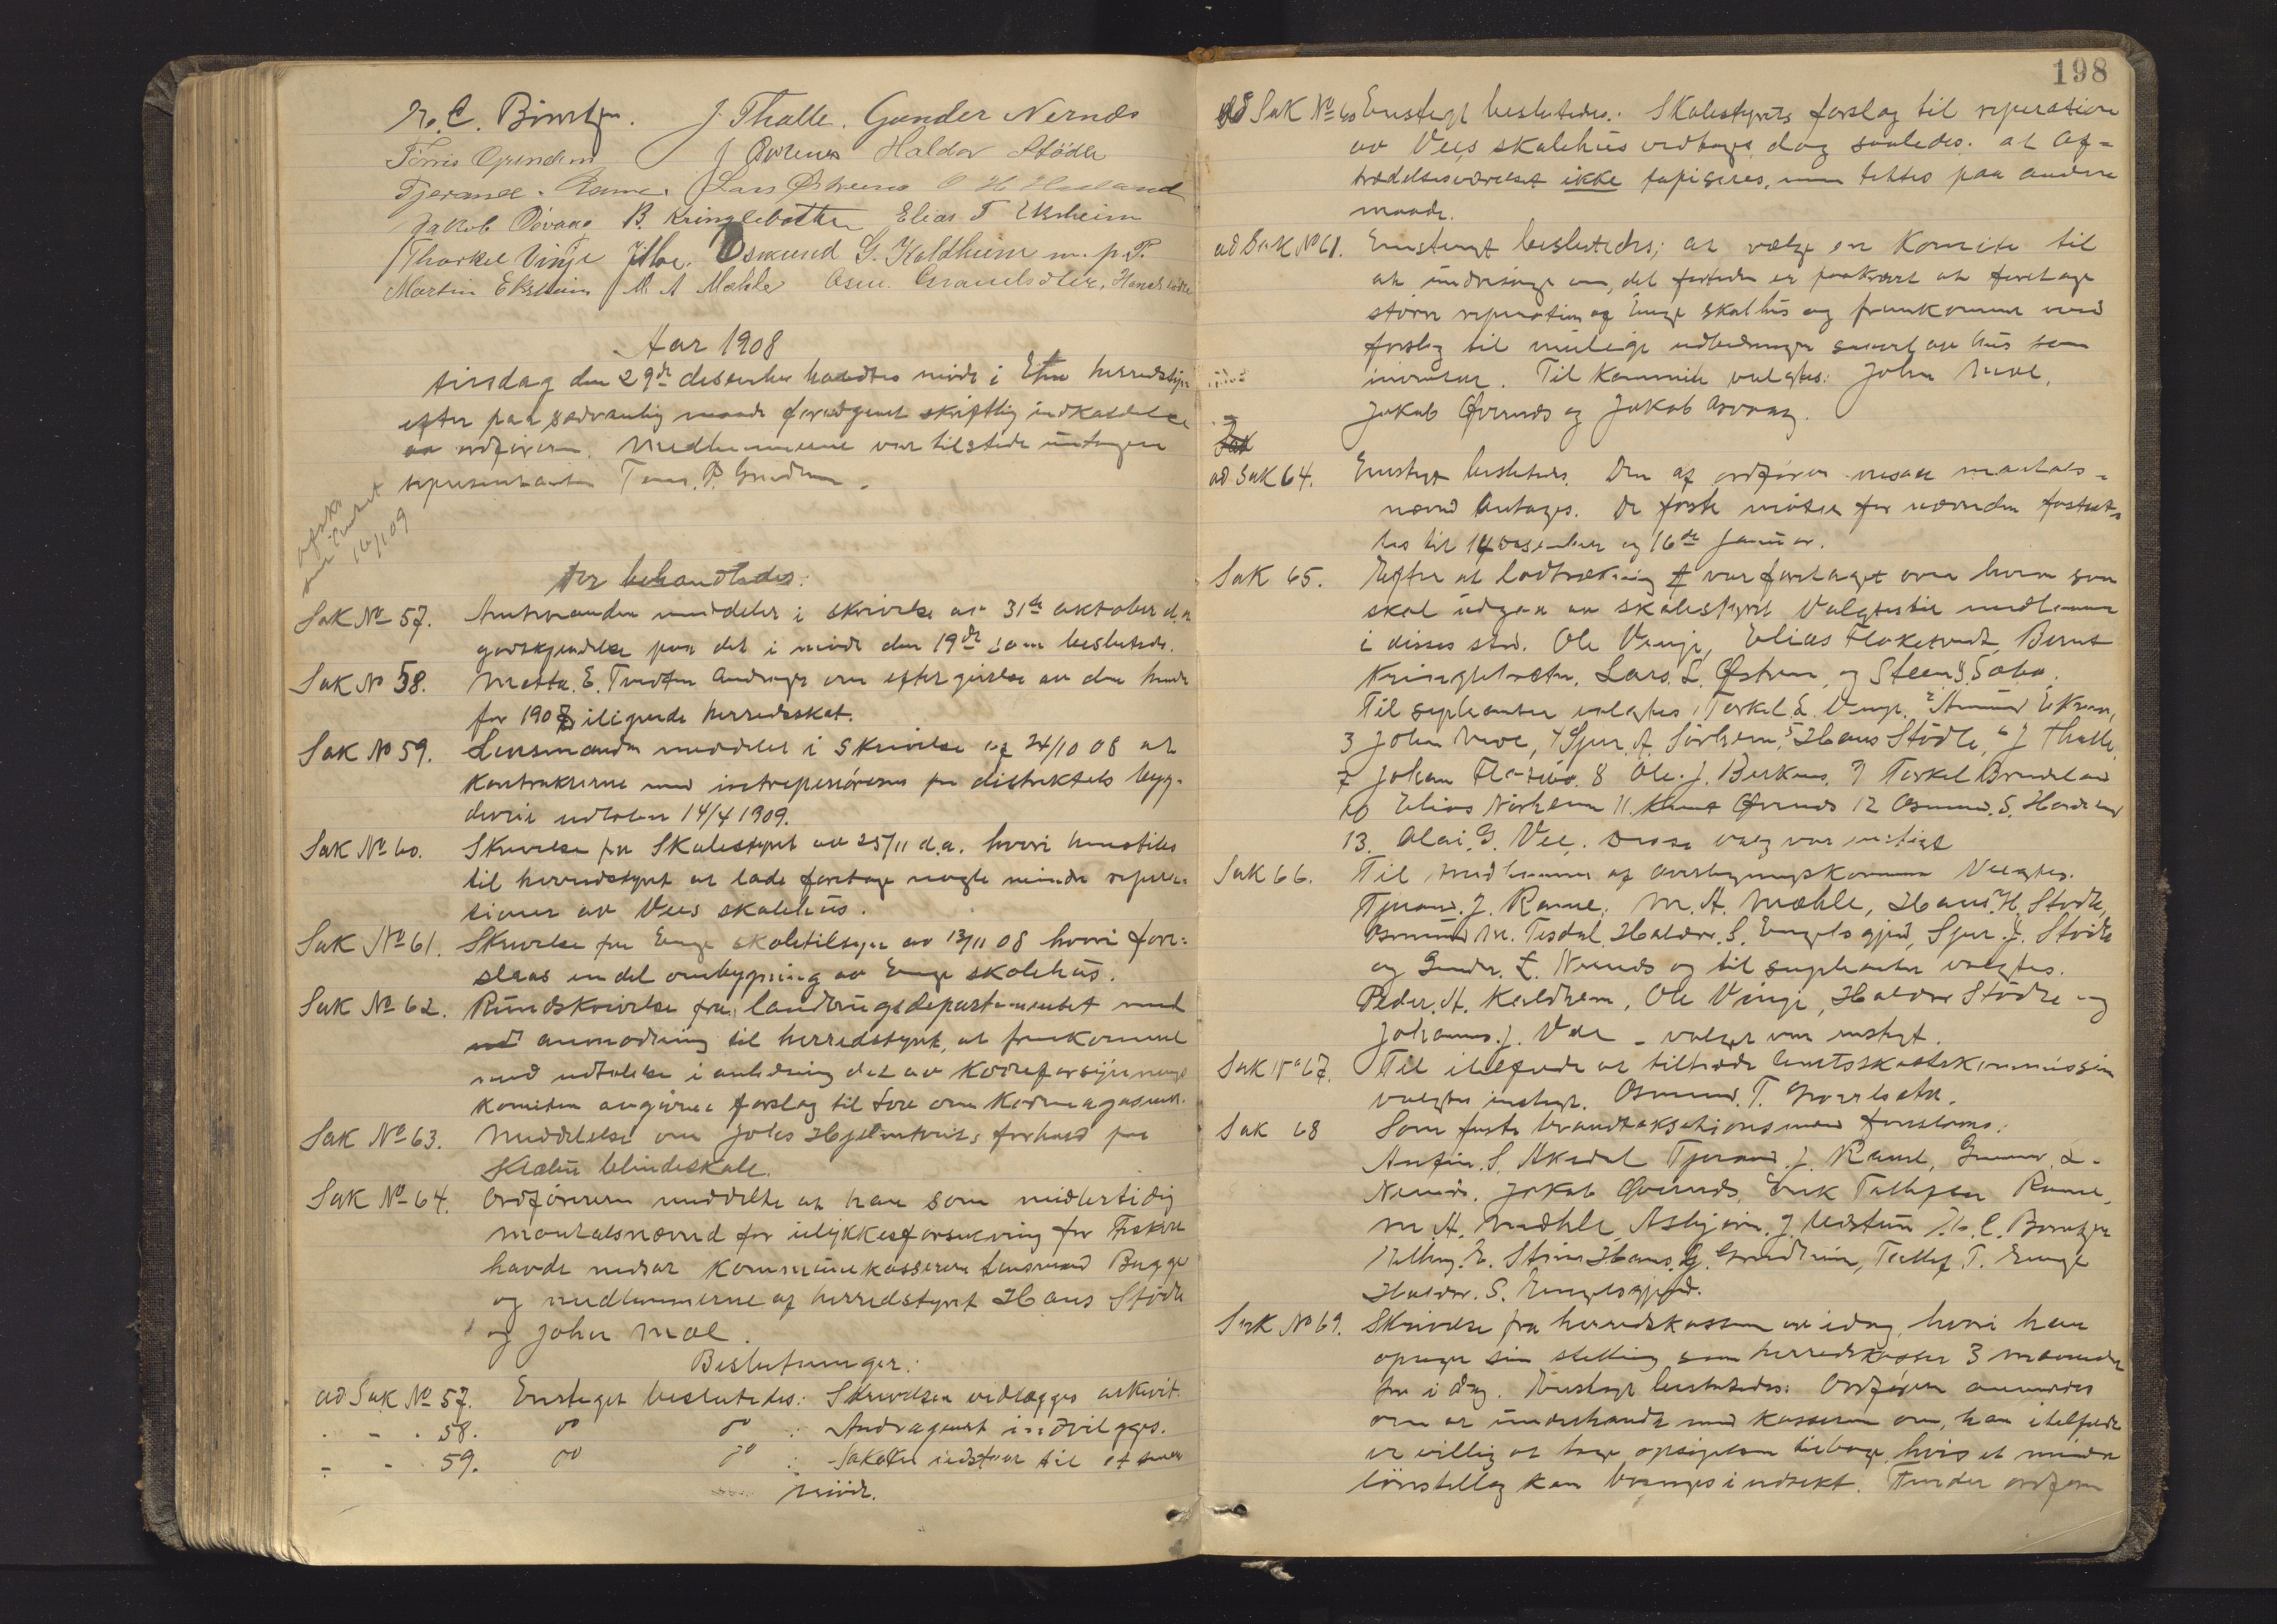 J. Thalle. Gunder Nernds
J Haldor Stödle
Tjerand. Rame. Lars Østrem
Jakob B. Kringlebotten Elias T Eksheim
Thorkel Vinje J Moe. Osmund G. Kaldheim m. p. P.
Martin Eksheim M A Mæhle Osm. Hans Stödle
Aar 1908
tirsdag den 29de desember holdtes möde i Etne herredstyre
efter paa sedvanlig maade foretaget skriftlig indkaldelse
av ordföreren. Medlemmerne var tilstede untagen
representanten
16/1 09
Der behandledes:
Sak No 57. Amtmanden meddeler i skrivelse av 31te oktober d. a
godkjendelse paa det i möde den 19de beslutede.
Sak No 58. Metta. E. Tvedten andrager om eftergivelse av den hende
for 1908 ilignede herredsskat.
Sak No 59. Lensmanden meddeler i Skrivelse av 24/10 08 at
Kontrakterne med for distriktets
udlöber 14/4 1909.
Sak No 60. Skrivelse fra Skolestyret av 25/11 d.a. hvori henstilles
til herredstyret at lade foretage nogle mindre repera-
tioner av Vees skolehus.
Sak No 61. Skrivelse fra Enge skoletilsyn av 13/11 08 hvori fore-
slaas en del ombygning av Enge skolehus.
Sak No 62. Rundskrivelse fra landbrugsdepartementet med
anmodning til herredstyret, at fremkomme
med udtalelse i anledning det av Kornforsynings
komiteen angivne forslag til lov om Kornmagasiner.
Sak No 63. Meddelelse om Johs Hjelmtveits forhold paa
Klæbu blindeskole.
Sak No 64. Ordföreren meddelte at han som midlertidig
mantalsnævnd for ulykkesforsikring for Fiskere
havde nedsat kommunekasserer lensmand Bugge
og medlemmerne af herredstyret Hans Stödle
og John Moe.
Beslutninger:
ad Sak No 57. Ensteget beslutedes: Skrivelsen vedlægges arkivet.
" - " 58. do do : Andragendet indvilgges.
- - " 59. do do : Saken udstaar til et senere
möde.
198
ad Sak No 60 Enstegt beslutedes: Skolestyrets forslag til reperation
av Vees skolehus vedtages dog saaledes. at af-
trædelsesværelset ikke tapiseres, men tettes paa anden
maade.
ad Sak No 61. Enstemt beslutedes; at vælge en Komite til
at undersöge om, det fortiden er paakrævet at foretage
större reperation af Enge skolhus og fremkomme med
forslag til mulige udbedringer saavel av hus som
inventar. Til Kommite valgtes: John Moe,
Jakob Øvernæs og Jakob
Sak
ad Sak 64. Enstegt beslutedes. Den af ordförer nedsatte mantals-
nævnd antages. De förste möter for nævnden fastset-
tes til 14 desember og 16de Januar.
Sak 65. Efter at lodtrækning var foretaget over hvem som
skal udgaa av skolestyret valgtes til medlemmer
i disses sted. Ole Vinje, Elias Floketvedt, Bernt
Kringlebotn, Lars. L. Østrem, og Steen S. Sæbø.
Til supleanter valgtes 1 Torkel L. Vinje. 2
3 John Moe, 4 Sjur. A. Sörheim, 5 Hans Stödle, 6 J Thalle
7 Johan 8 Ole. J. Berknes. 9 Torkel
10 Elias Nörheim 11. Knut Øvernes 12 Osmund. S.
13. Olai. G. Vee. Disse valg var enstegt
Sak 66. Til medlemmer af overligningskommisn valgtes.
Tjerand. J. Rame. M. A. Mæhle, Hans. H. Stödle,
Osmund M. Tesdal, Haldor. S. Engelsgjerd, Sjur. J. Stödle
og Gunder. L. Nernes og til supleanter valgtes.
Peder. A. Kaldheim, Ole Vinje, Haldor Stödle og
Johannes. J. Vee - valget var enstegt.
Sak No 67. Til ilefude at tiltræde amtsskattekommissin
valgtes enstegt. Osmund. T.
Sak 68 Som faste brandtaksationsmænd foresloges:
Anfin. S. Aksdal Tjerand. J. Rame, Gunnar. L.
Nernes. Jakob Øvernes, Erik Tollefsen Rame,
M A. Mæhle, Asbjørn. J
Hans. G. Grindheim, Tollef. T. Enge
Haldor. S. Engelsgjerd.
Sak No 69. Skrivelse fra herredskasseren av idag, hvori han
opsiger sin stelling som herredskasser 3 maaneder
fra i dag. Enstegt beslutedes: Ordføreren anmodes
om at underhandle med kasseren om, han itilfælde
er villig at tage opsigelsen tilbage, hvis et mindre
lönstillæg kan bringes i udsikt. Finder ordføren